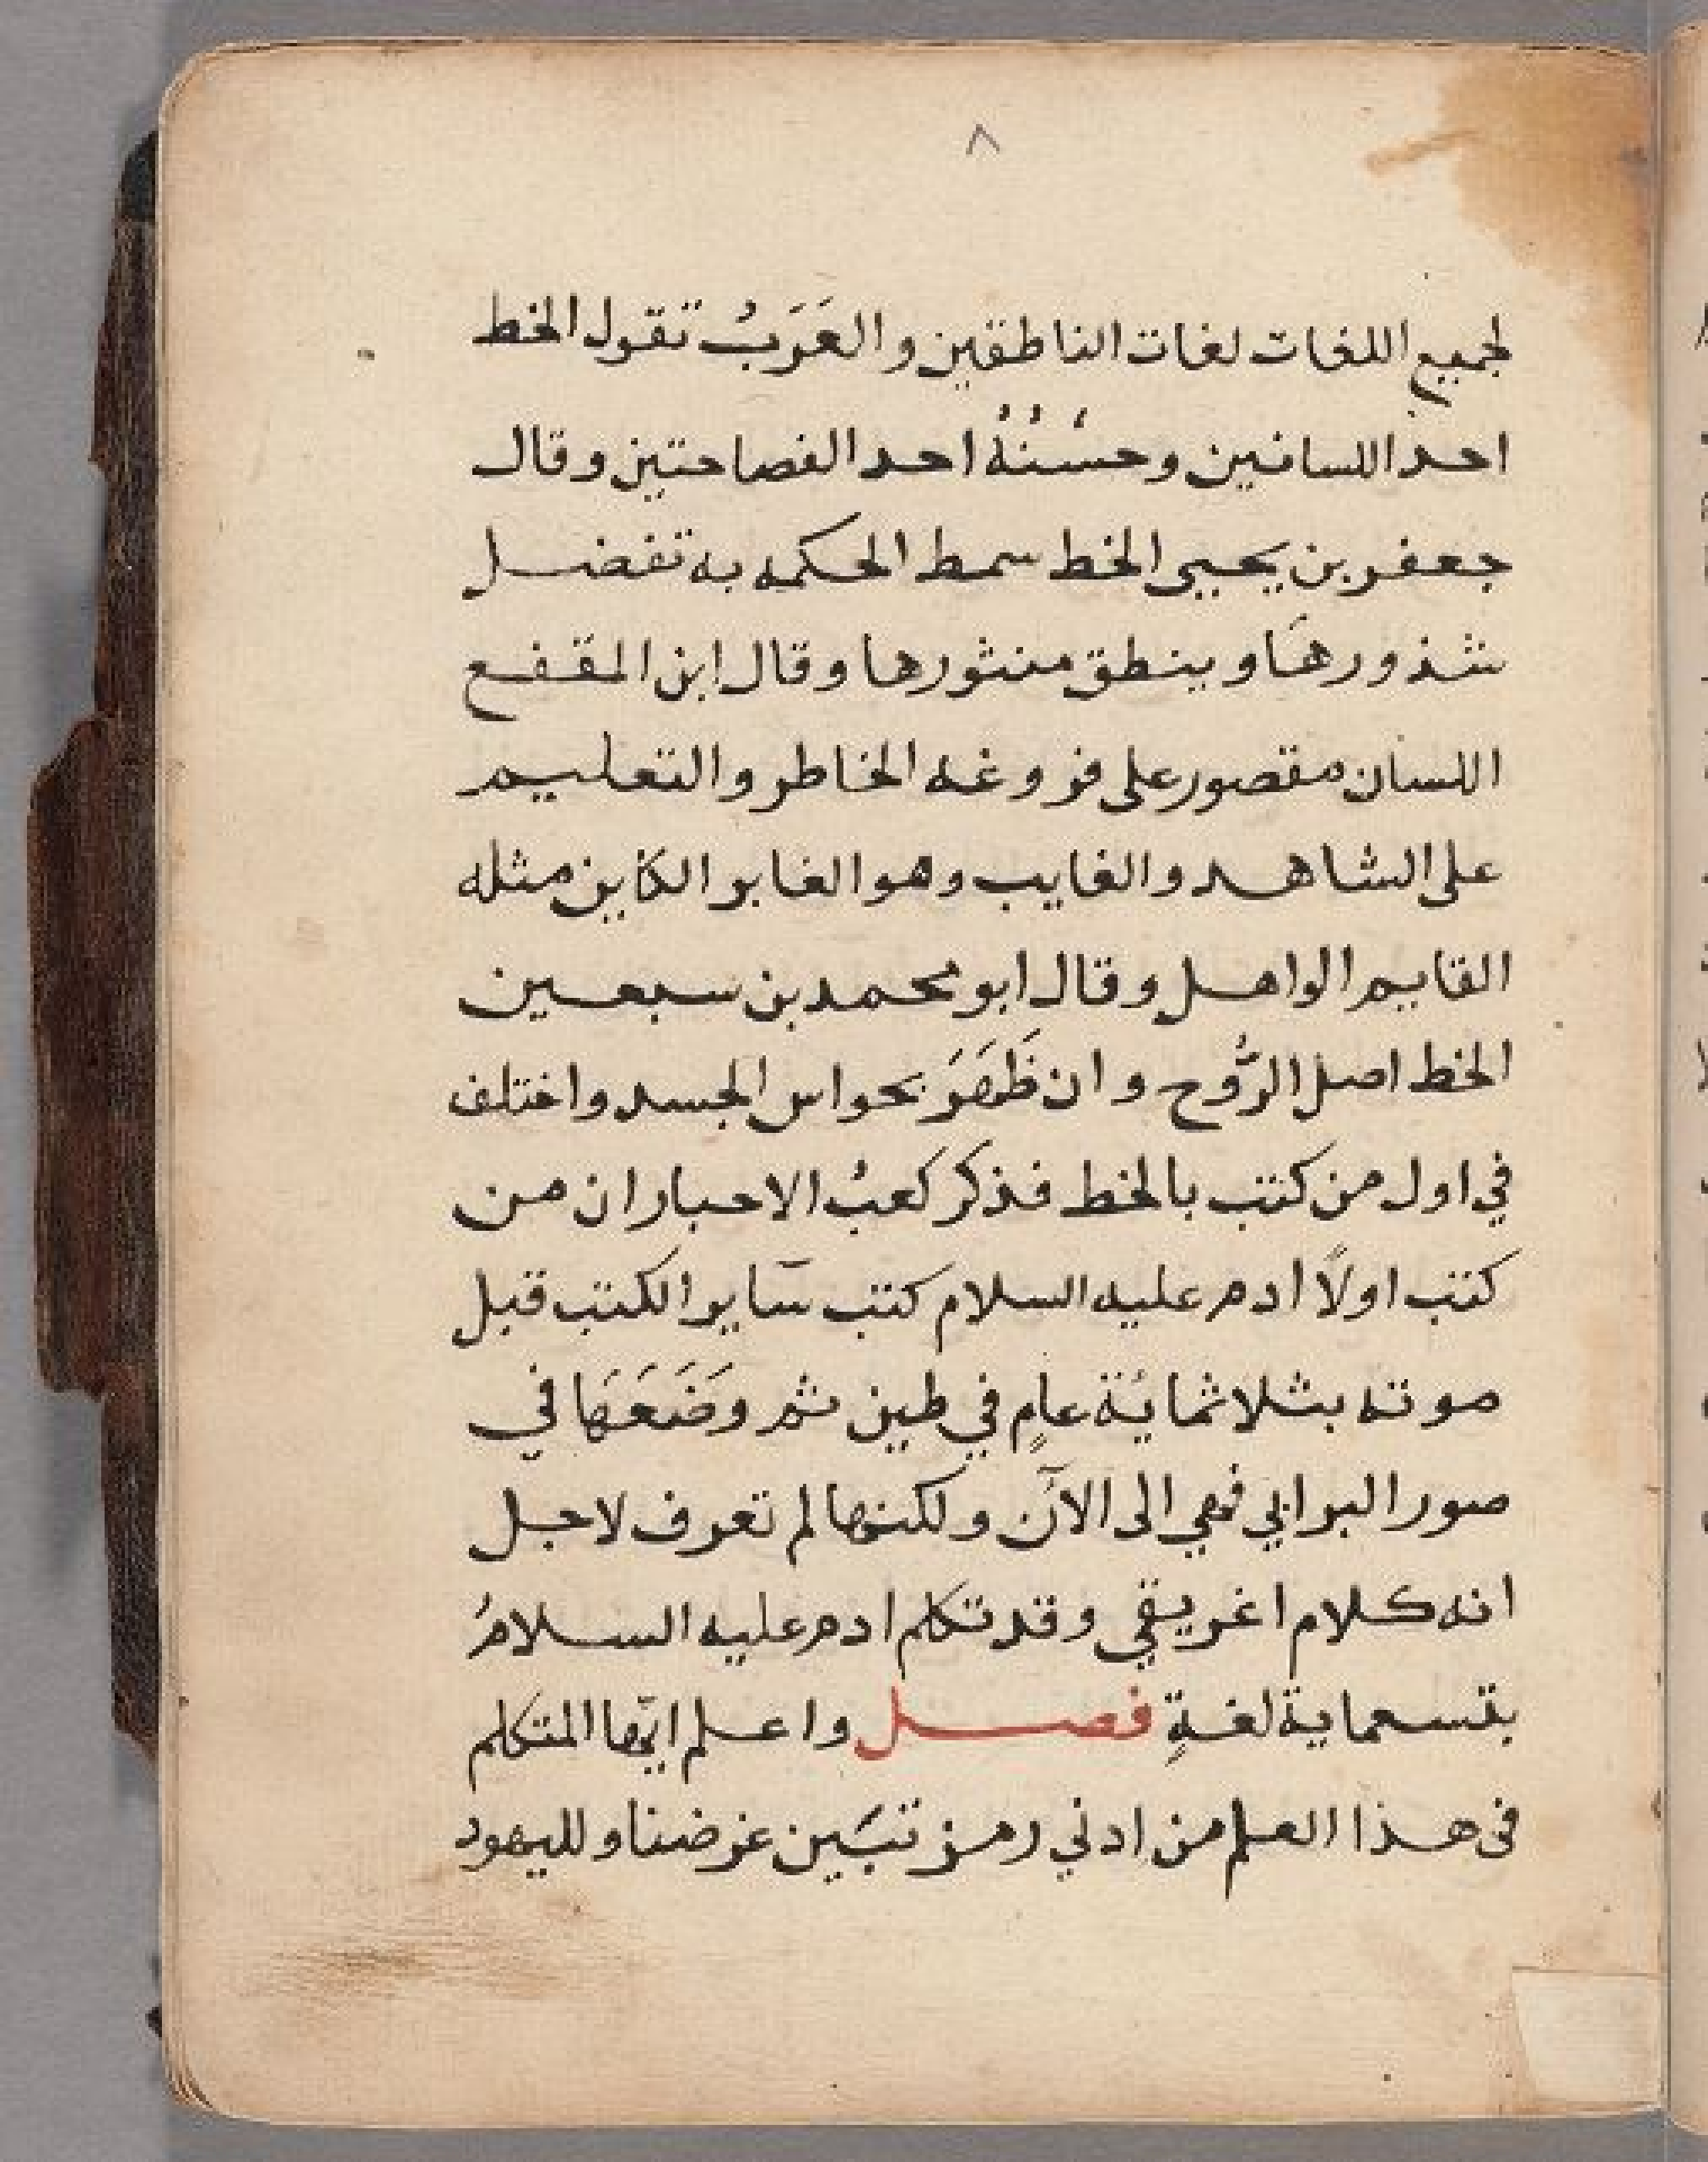 ٨
لجميع اللغات لغات الناطقين والعَرَبُ تقول الخط
احد اللسانين وحسُنُهُ احد الفصاحتين وقال
جعفر بن يحيى الخط سمط الحكمه به تفضل
شذورهَا وينطق منثورها وقال ابن المقفع
اللسان مقصور على فروغه الخاطر والتعليم
على الشاهد والغايب وهو الغابر الكاين مثله
القايم الواهل وقال ابو محمد بن سبعين
الخط اصل الرُّوح وان ظَهَرَ بحواس الجسد واختلف
في اول من كتب بالخط فذكر كعبُ الاحبار ان من
كتب اولاً ادم عليه السلام كتب سآير الكتب قبل
موته بثلاثمايُة عامٍ في طين ثم وَضَعَهَا في
صور البرابي فهي الى الآن ولكنها لم تعرف لاجل
انه كلام اغريقي وقد تكلم ادم عليه السلامُ
بتسعماية لغةٍ فصل واعلم ايّها المتكلم
في هذا العلم من ادني رمز تبَين غرضنا ولليهود